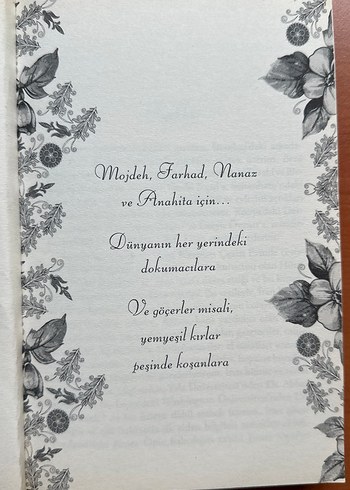 Mojdeh, Farhad, Nanaz
ve Anahita için...
Dünyanın her yerindeki
dokumacılara
Ve göçerler misali,
yemyeşil kırlar
peşinde koşanlara